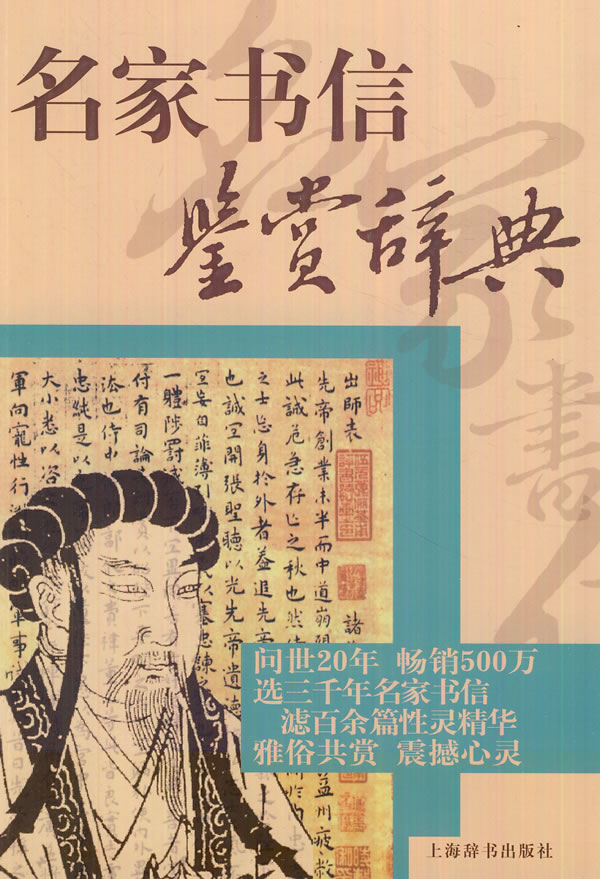 名家书信
鉴赏辞典
名家書
出師表
諸
先帝創業未半而中道崩
益州疲敝
此誠危急存亡之秋也然
之士忘身於外者蓋追先帝
也誠宜開張聖聽以光先帝遺德
宜妄自菲薄引
以塞忠諫
一體陟罰臧
付有司論
法也侍中
忠純是以
大小悉以咨
軍向寵性行
问世20年 畅销500万
选三千年名家书信
滤百余篇性灵精华
雅俗共赏 震撼心灵
上海辞书出版社